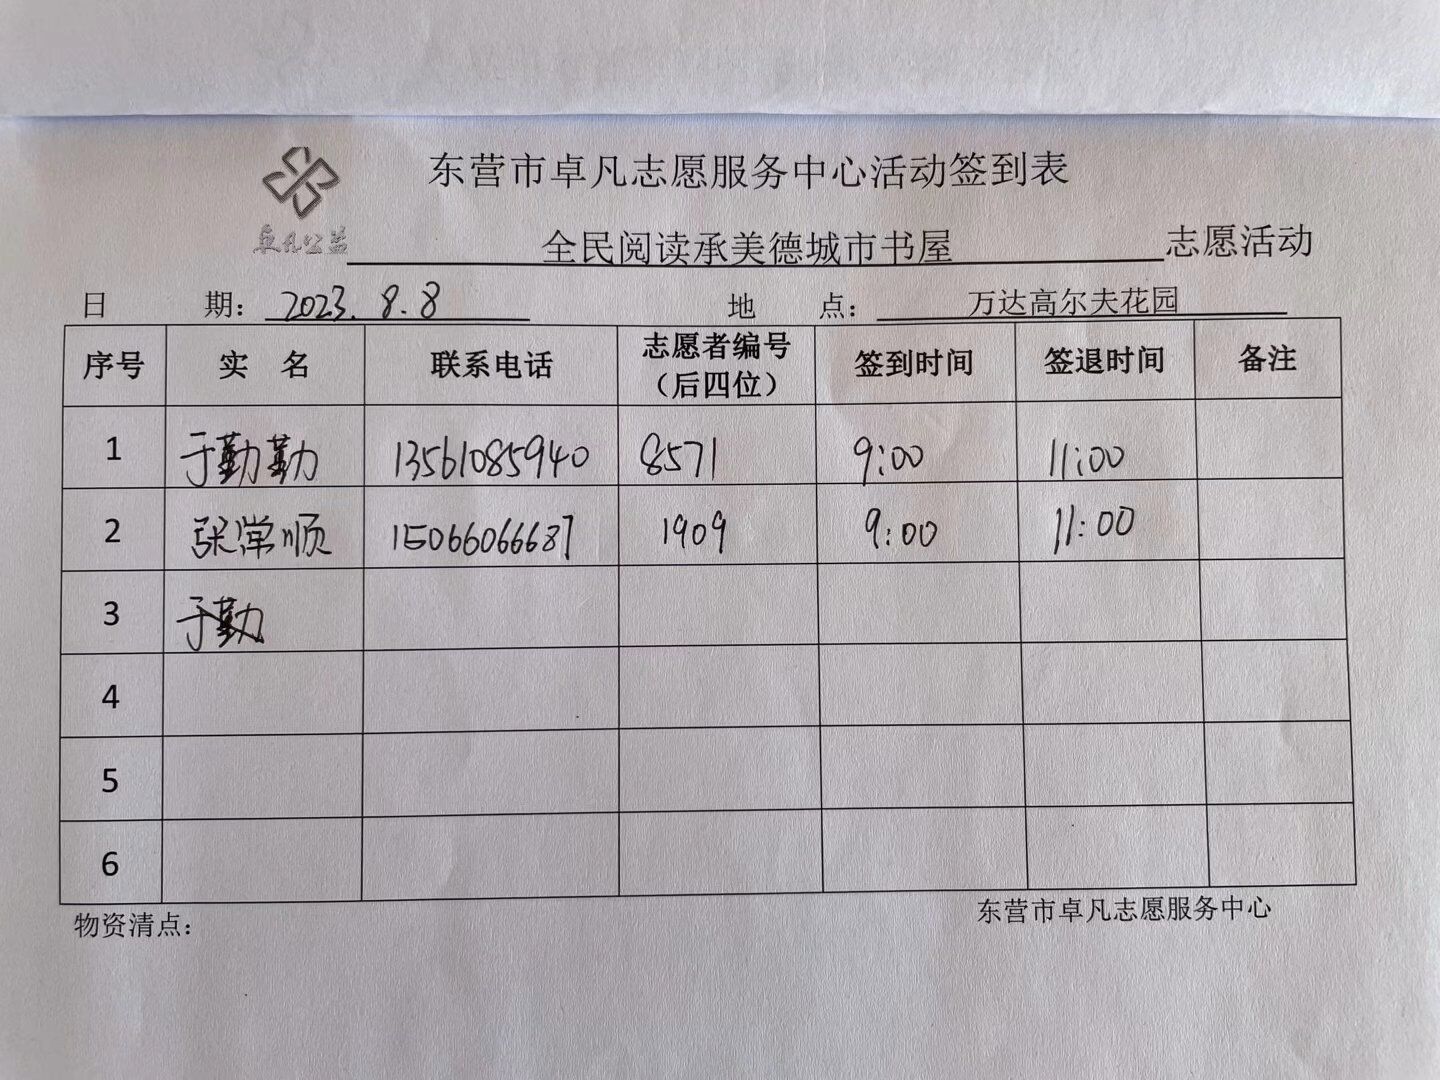 东营市卓凡志愿服务中心活动签到表
卓凡公益
全民阅读承美德城市书屋 志愿活动
日 期: 2023.8.8 地 点: 万达高尔夫花园
序号 实 名 联系电话 志愿者编号（后四位） 签到时间 签退时间 备注
1 于勤勤 13561085940 8571 9:00 11:00
2 张常顺 15066066687 1909 9:00 11:00
3 于勤
4
5
6
物资清点: 东营市卓凡志愿服务中心